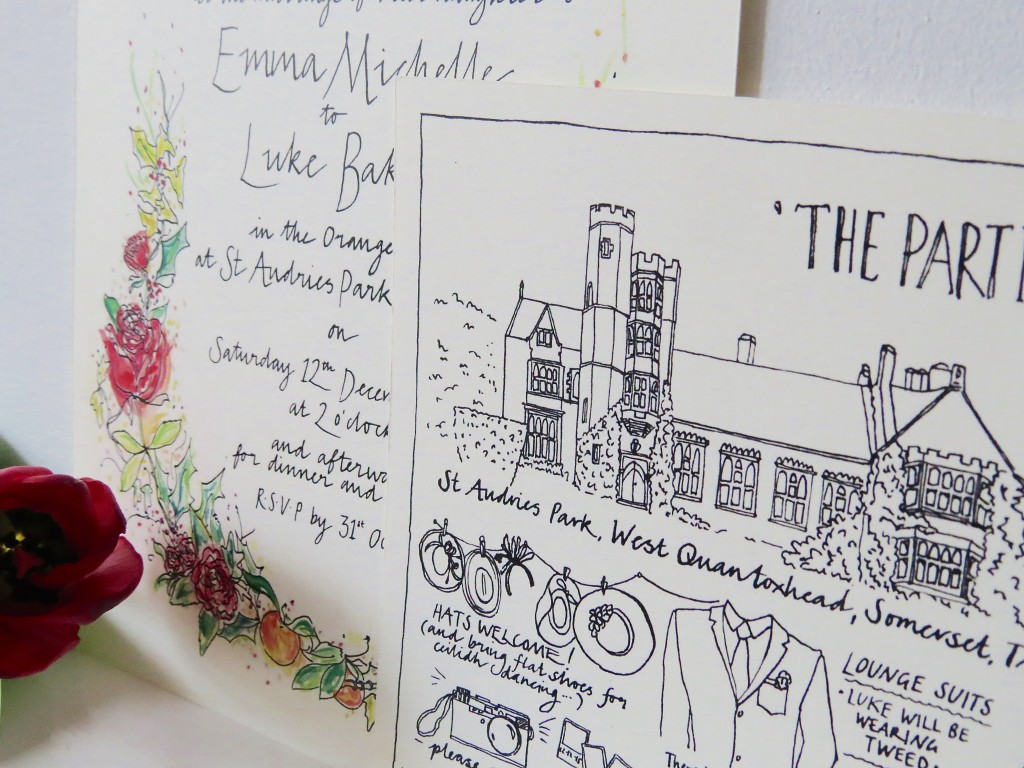 Emma Michelle
to
Luke Bak
in the Orange
at St Audries Park
on
Saturday 12th Decem
at 2 o'clock
and afterwa
for dinner and
R.S.V.P by 31st Oc
'THE PART
St Audries Park, West Quantoxhead, Somerset, TA
HATS WELCOME!
(and bring flat shoes for
ceilidh dancing..)
please
LOUNGE SUITS
'LUKE WILL BE
WEARING
TWEED